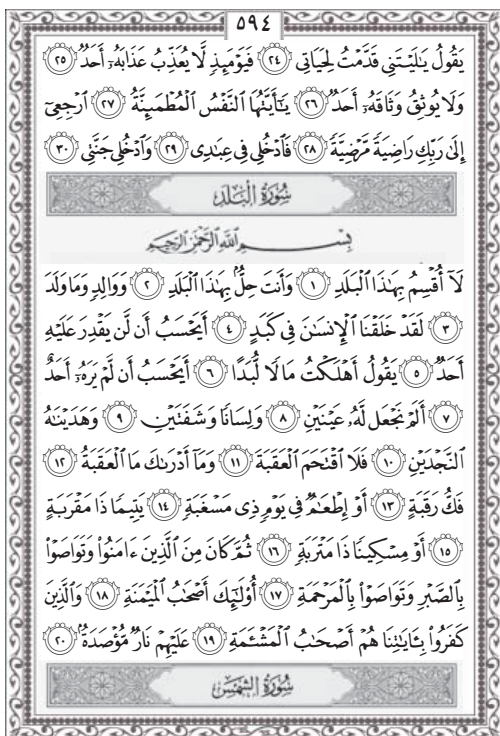 ٥٩٤
يَقُولُ يَٰلَيْتَنِي قَدَّمْتُ لِحَيَاتِي ٢٤ فَيَوْمَئِذٍ لَّا يُعَذِّبُ عَذَابَهُۥٓ أَحَدٌ ٢٥
وَلَا يُوثِقُ وَثَاقَهُۥٓ أَحَدٌ ٢٦ يَٰٓأَيَّتُهَا ٱلنَّفْسُ ٱلْمُطْمَئِنَّةُ ٢٧ ٱرْجِعِىٓ
إِلَىٰ رَبِّكِ رَاضِيَةً مَّرْضِيَّةً ٢٨ فَٱدْخُلِى فِى عِبَٰدِى ٢٩ وَٱدْخُلِى جَنَّتِى ٣٠
سُورَةُ الْبَلَدِ
بِسْمِ ٱللَّهِ ٱلرَّحْمَٰنِ ٱلرَّحِيمِ
لَآ أُقْسِمُ بِهَٰذَا ٱلْبَلَدِ ١ وَأَنتَ حِلٌّۢ بِهَٰذَا ٱلْبَلَدِ ٢ وَوَالِدٍ وَمَا وَلَدَ
٣ لَقَدْ خَلَقْنَا ٱلْإِنسَٰنَ فِى كَبَدٍ ٤ أَيَحْسَبُ أَن لَّن يَقْدِرَ عَلَيْهِ
أَحَدٌ ٥ يَقُولُ أَهْلَكْتُ مَالًا لُّبَدًا ٦ أَيَحْسَبُ أَن لَّمْ يَرَهُۥٓ أَحَدٌ
٧ أَلَمْ نَجْعَل لَّهُۥ عَيْنَيْنِ ٨ وَلِسَانًا وَشَفَتَيْنِ ٩ وَهَدَيْنَٰهُ
ٱلنَّجْدَيْنِ ١٠ فَلَا ٱقْتَحَمَ ٱلْعَقَبَةَ ١١ وَمَآ أَدْرَىٰكَ مَا ٱلْعَقَبَةُ ١٢
فَكُّ رَقَبَةٍ ١٣ أَوْ إِطْعَٰمٌ فِى يَوْمٍ ذِى مَسْغَبَةٍ ١٤ يَتِيمًا ذَا مَقْرَبَةٍ
١٥ أَوْ مِسْكِينًا ذَا مَتْرَبَةٍ ١٦ ثُمَّ كَانَ مِنَ ٱلَّذِينَ ءَامَنُوا۟ وَتَوَاصَوْا۟
بِٱلصَّبْرِ وَتَوَاصَوْا۟ بِٱلْمَرْحَمَةِ ١٧ أُو۟لَٰٓئِكَ أَصْحَٰبُ ٱلْمَيْمَنَةِ ١٨ وَٱلَّذِينَ
كَفَرُوا۟ بِـَٔايَٰتِنَا هُمْ أَصْحَٰبُ ٱلْمَشْـَٔمَةِ ١٩ عَلَيْهِمْ نَارٌ مُّؤْصَدَةٌۢ ٢٠
سُورَةُ الشَّمْسِ